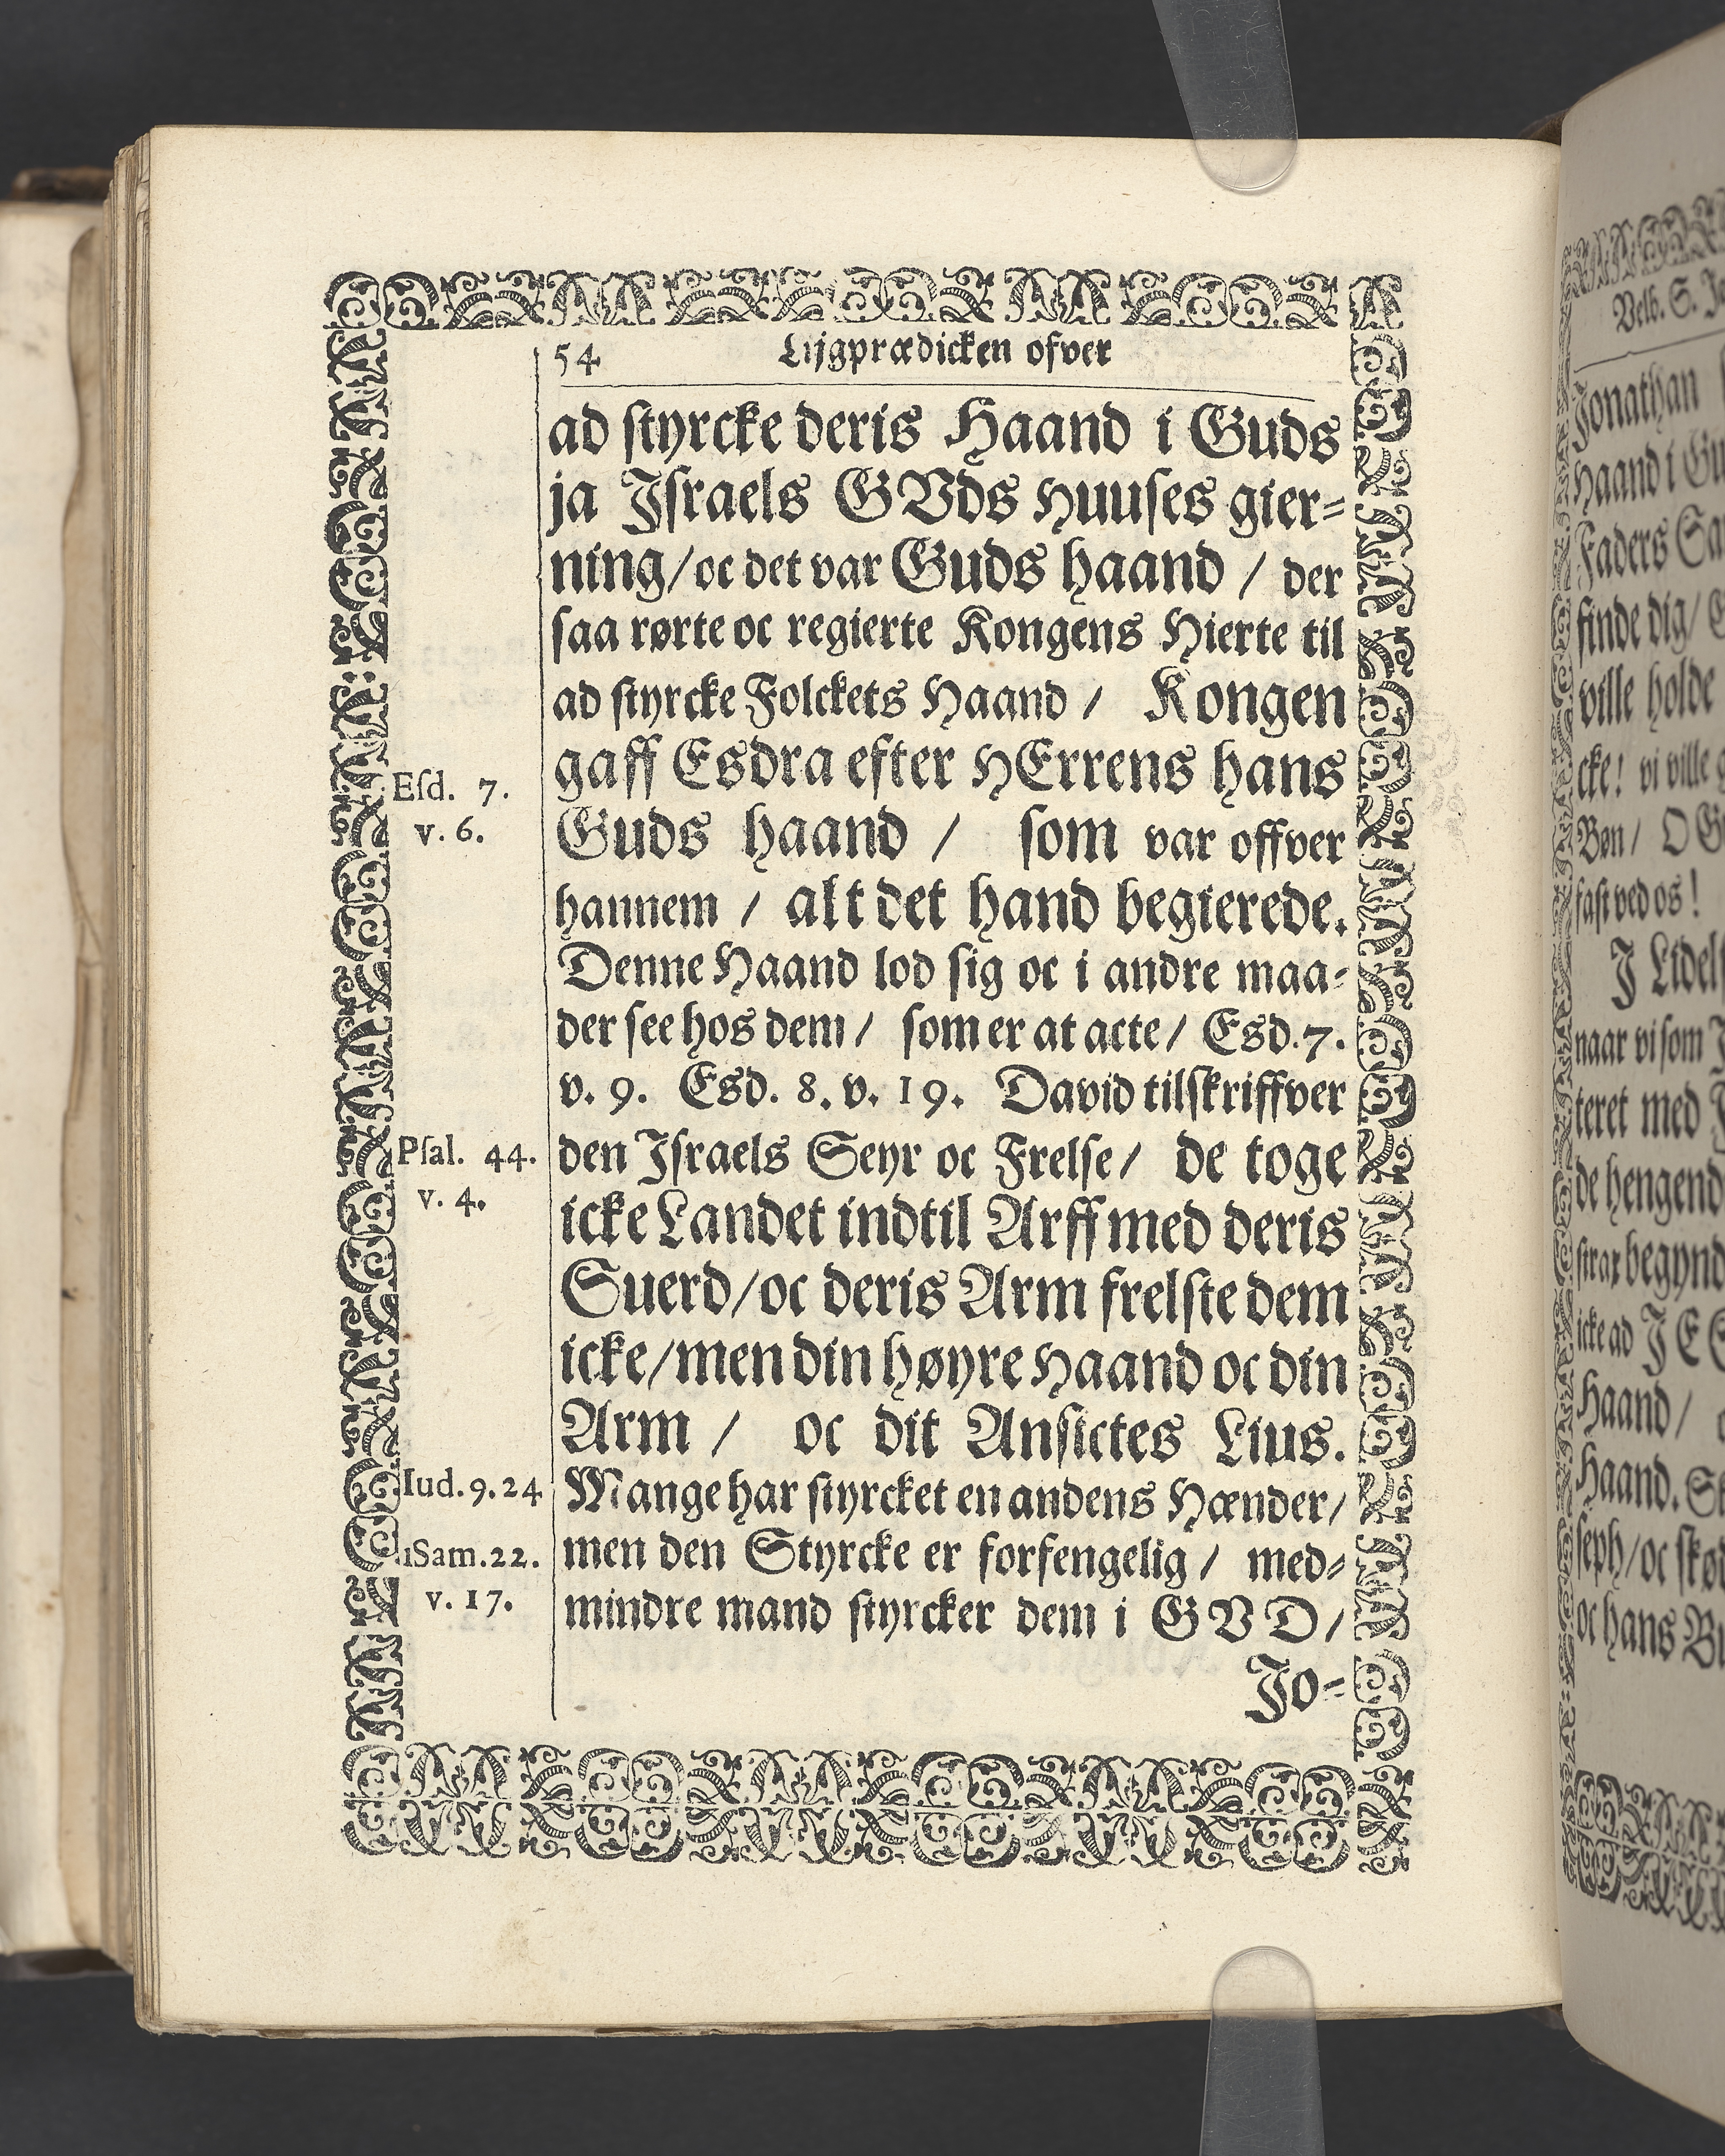 54 Lijgprædicken ofver
ad styrcke deris Haand i Guds
ja Israels GVds Huuses gier-
ning/oc det var Guds haand / der
saa rørte oc regierte Kongens Hierte til
ad styrcke Folckets Haand / Kongen
gaff Esdra efter HErrens hans
Esd. 7.
v. 6.
Guds haand / som var offver
hannem / alt det hand begierede.
Denne Haand lod sig oc i andre maa-
der see hos dem / som er at acte / Esd. 7.
v. 9. Esd. 8. v. 19. David tilskriffver
Psal. 44.
v. 4.
den Israels Seyr oc Frelse / de toge
icke Landet indtil Arff med deris
Suerd/oc deris Arm frelste dem
icke/men din høyre Haand oc din
Arm / oc dit Ansictes Lius.
Iud. 9. 24
Mange har styrcket en andens Hænder/
1 Sam. 22.
v. 17.
men den Styrcke er forfengelig / med-
mindre mand styrcker dem i GVD/
Jo-
Velb. S.
Jonathan
Haand i
Faders
finde dig/
ville holde
cke! vi ville
Bøn / O
fast ved os!
J
naar vi som
teret med
de
strax
icke ad
Haand /
Haand.
seph/oc
oc hans